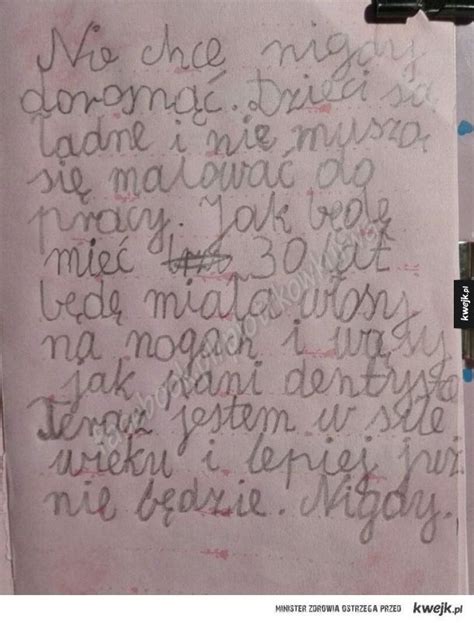 Nie chcę nigdy
dorosnąć. Dzieci są
ładne i nie muszą
się malować do
pracy. Jak będę
mieć 30 lat
będę miała włosy
na nogach i wąsy
jak Pani dentysta
Teraz jestem w sile
wieku i lepiej już
nie będzie. Nigdy.
kwejk.pl
MINISTER ZDROWIA OSTRZEGA PRZED kwejk.pl